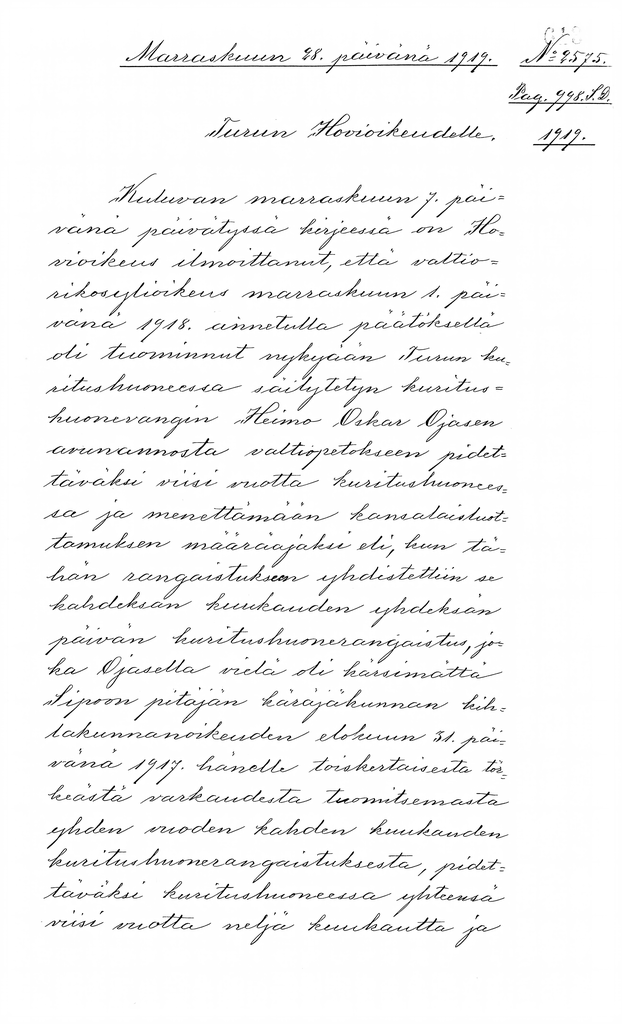 Marraskuun 28. päivänä 1919.
No 2575.
Pag. 998. S.D.
1919.
Turun Hovioikeudelle.
Kuluvan marraskuun 7. päi=
vänä päivätyssä kirjeessä on Ho=
vioikeus ilmoittanut, että valtio=
rikosylioikeus marraskuun 1. päi=
vänä 1918. annetulla päätöksellä
oli tuominnut nykyään Turun ku=
ritushuoneessa säilytetyn kuritus=
huonevangin Heimo Oskar Ojasen
avunannosta valtiopetokseen pidet=
täväksi viisi vuotta kuritushuonees=
sa ja menettämään kansalaisluot=
tamuksen määräajaksi eli, kun tä=
hän rangaistukseen yhdistettiin se
kahdeksan kuukauden yhdeksän
päivän kuritushuonerangaistus, jo=
ka Ojasella vielä oli kärsimättä
Sipoon pitäjän käräjäkunnan kih=
lakunnanoikeuden elokuun 31. päi=
vänä 1917. hänelle toiskertaisesta tör=
keästä varkaudesta tuomitsemasta
yhden vuoden kahden kuukauden
kuritushuonerangaistuksesta, pidet=
täväksi kuritushuoneessa yhteensä
viisi vuotta neljä kuukautta ja